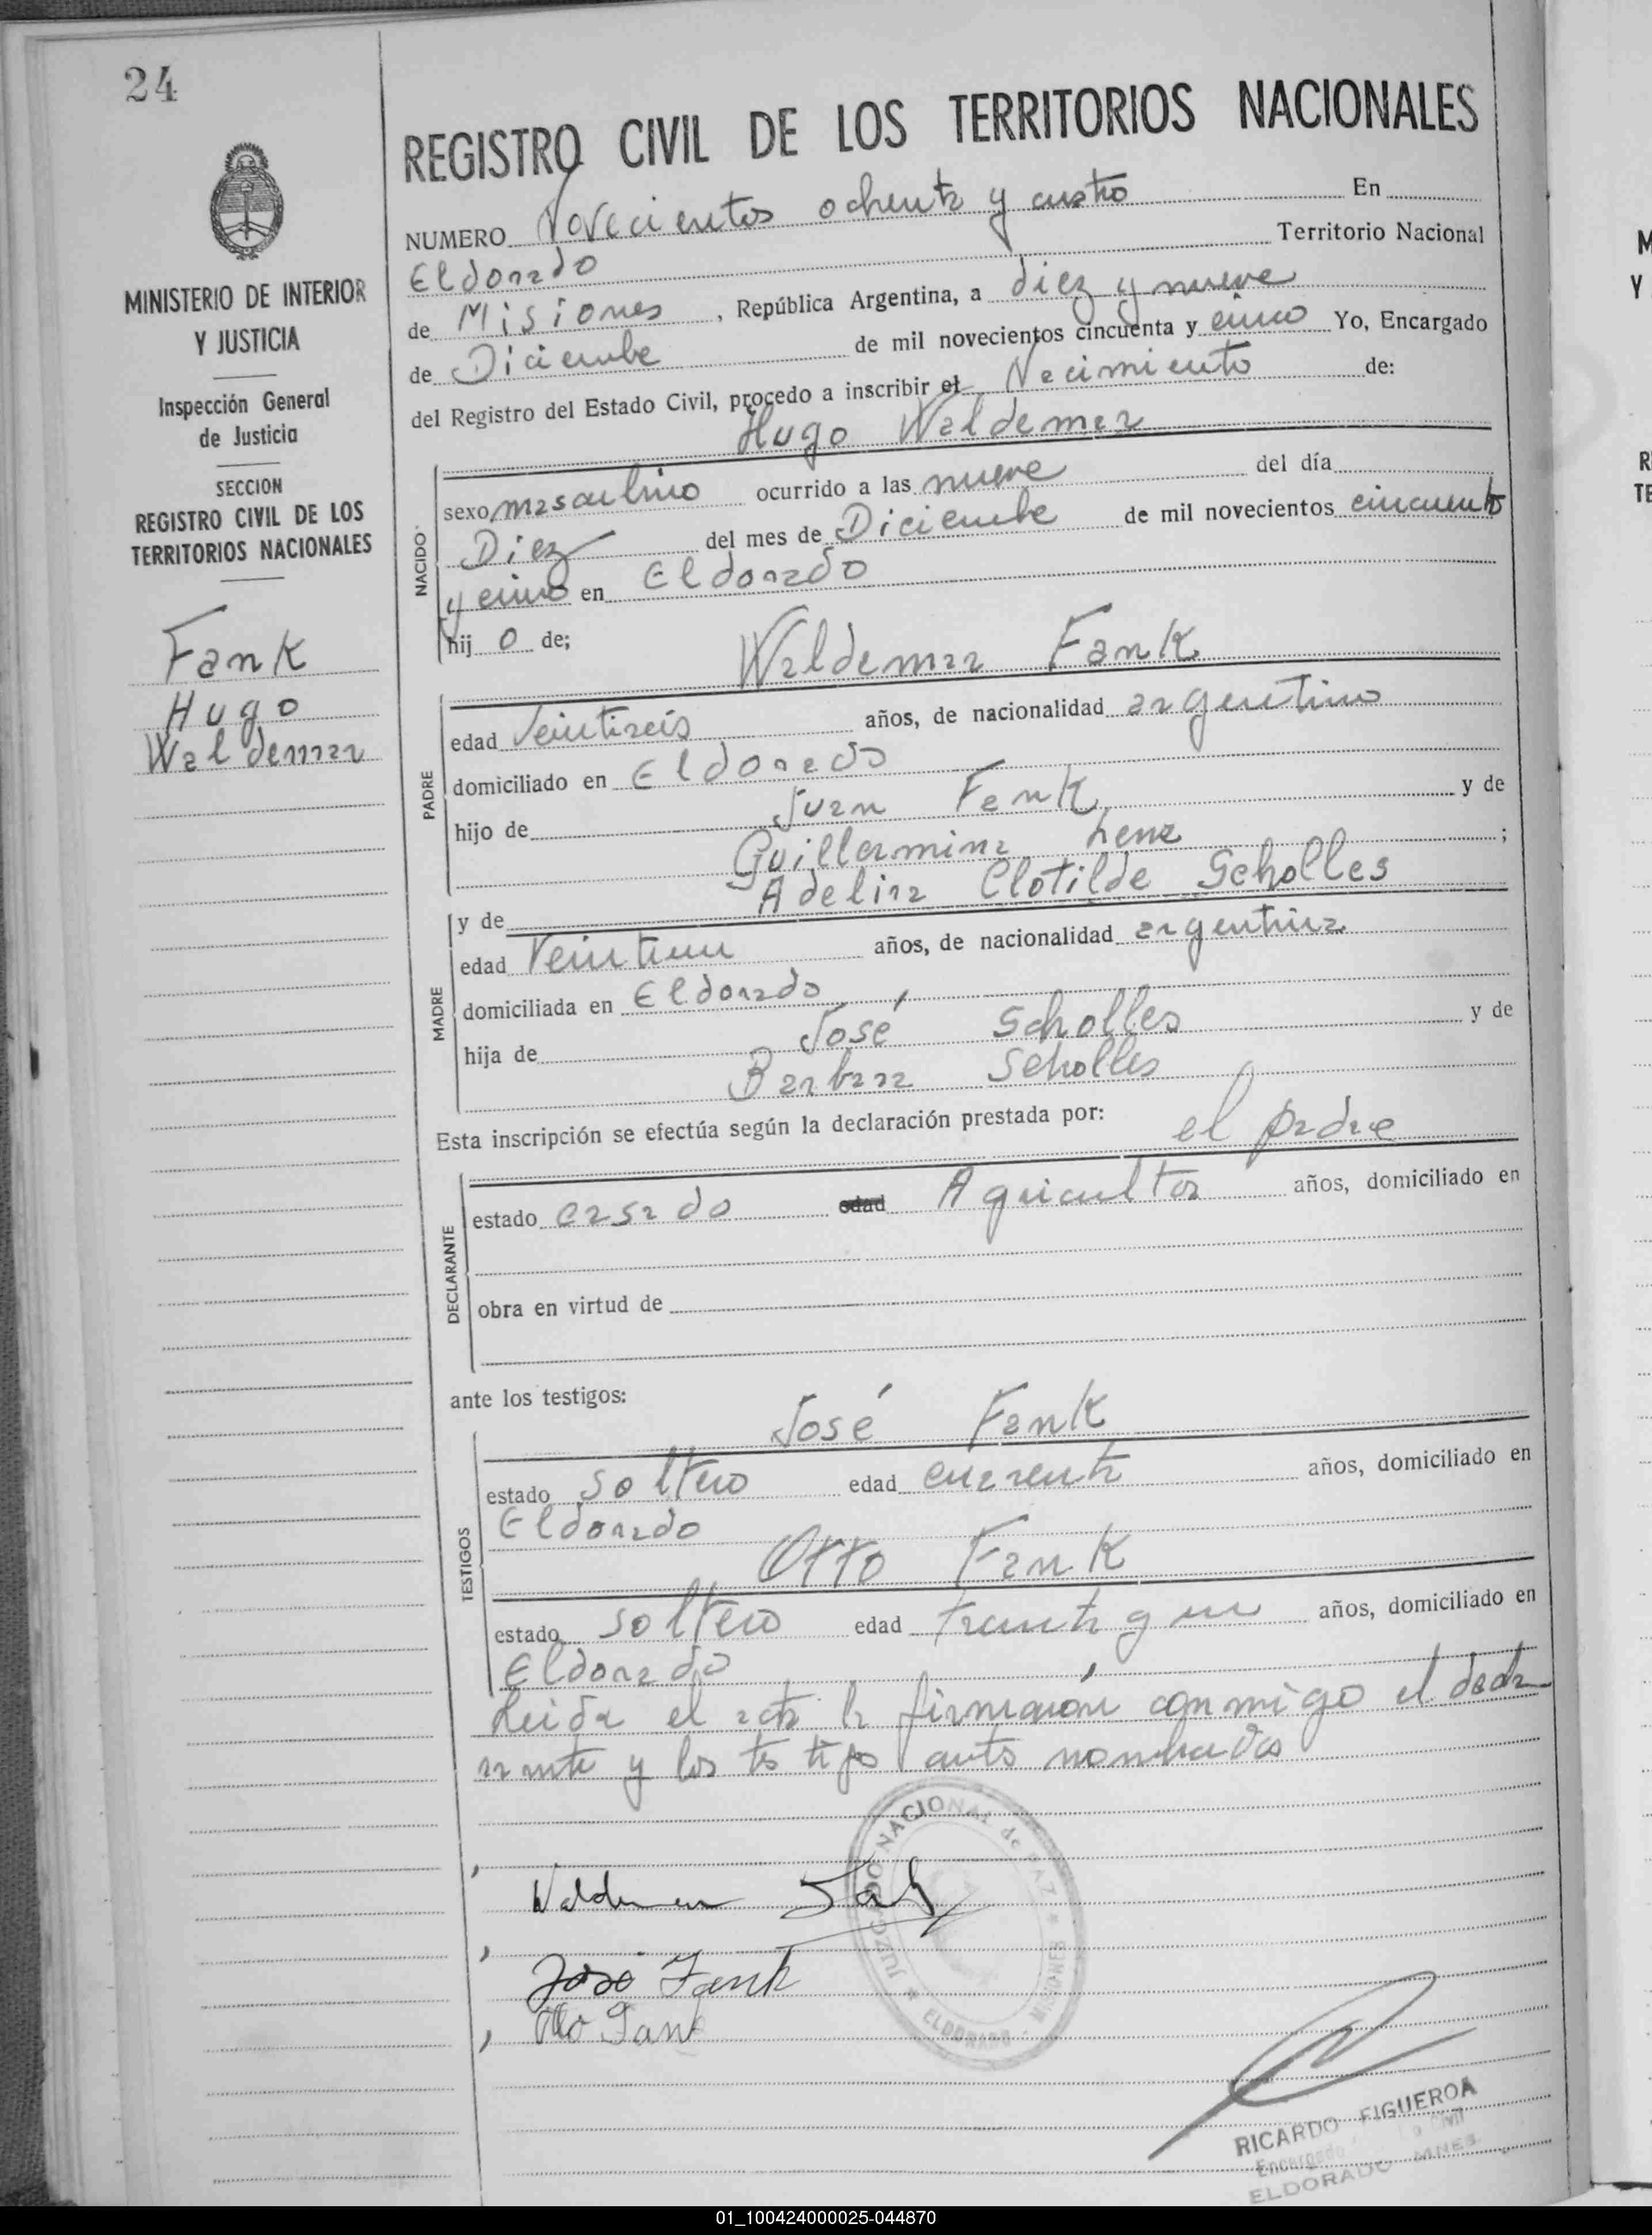 24
MINISTERIO DE INTERIOR
Y JUSTICIA
Inspección General
de Justicia
SECCION
REGISTRO CIVIL DE LOS
TERRITORIOS NACIONALES
Fank
Hugo
Waldemar
REGISTRO CIVIL DE LOS TERRITORIOS NACIONALES
NUMERO Novecientos ochenta y cuatro En
Eldorado Territorio Nacional
de Misiones, República Argentina, a diez y nueve
de Diciembre de mil novecientos cincuenta y cinco Yo, Encargado
del Registro del Estado Civil, procedo a inscribir el Nacimiento de:
Hugo Waldemar
NACIDO
sexo masculino ocurrido a las nueve del día
Diez del mes de Diciembre de mil novecientos cincuenta
y cinco en Eldorado
hij o de;
Waldemar Fank
PADRE
edad Veintiseis años, de nacionalidad argentino
domiciliado en Eldorado
hijo de Juan Fank y de
Guillermina Lenz ;
y de Adelina Clotilde Scholles
MADRE
edad Veintiun años, de nacionalidad argentina
domiciliada en Eldorado
hija de José Scholles y de
Barbara Scholles
Esta inscripción se efectúa según la declaración prestada por: el padre
DECLARANTE
estado casado edad Agricultor años, domiciliado en
obra en virtud de
ante los testigos:
José Fank
TESTIGOS
estado soltero edad cuarenta años, domiciliado en
Eldorado
Otto Fank
estado soltero edad treinta y un años, domiciliado en
Eldorado
Leida el acta la firmarón conmigo el decla
rante y los testigos antes nombrados
Waldemar Fank
José Fank
Otto Fank
JUZGADO NACIONAL de PAZ * MISIONES - ELDORADO *
RICARDO FIGUEROA
Encargado Civil
ELDORADO MNES.
01_100424000025-044870